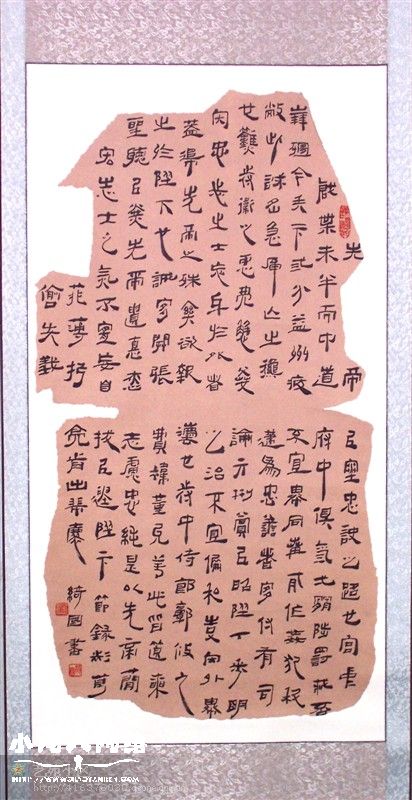 先帝
業未半而中道
崩殂今天下三分益州疲
敝此誠危急存亡之秋
也侍衛之臣
忠志之士忘身於外者
蓋追先帝之殊遇欲報
之於陛下也誠宜開張
聖聽以光先帝遺德恢
宏志士之氣不宜妄自
菲薄引
喻失義
以塞忠諫之路也宮中
府中俱為一體陟罰臧否
不宜異同若有作姦犯科
及為忠善者宜付有司
論其刑賞以昭陛下平明
之治不宜偏私使內外異
法也侍中侍郎郭攸之
費禕董允等此皆良實
志慮忠純是以先帝簡
拔以遺陛下 節錄
書